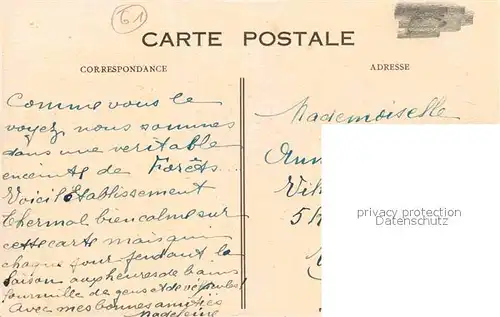 61
CARTE POSTALE
CORRESPONDANCE
ADRESSE
Comme vous le
voyez nous sommes
dans une veritable
enceinte de Forêts...
Voici l'Etablissement
thermal bien calme sur
cette carte mais qui
chaque jour pendant la
saison aux heures de bains
fourmille de gens et de vépubs!
Avec mes bonnes amitiés
Madeleine
Mademoiselle
privacy protection
Datenschutz